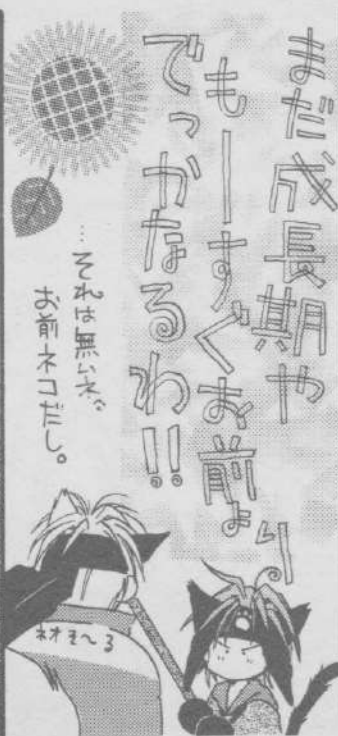 まだ成長期や
もーすぐお前より
でっかなるわ!!
…それは無いネ。
お前ネコだし。
ネオも〜る